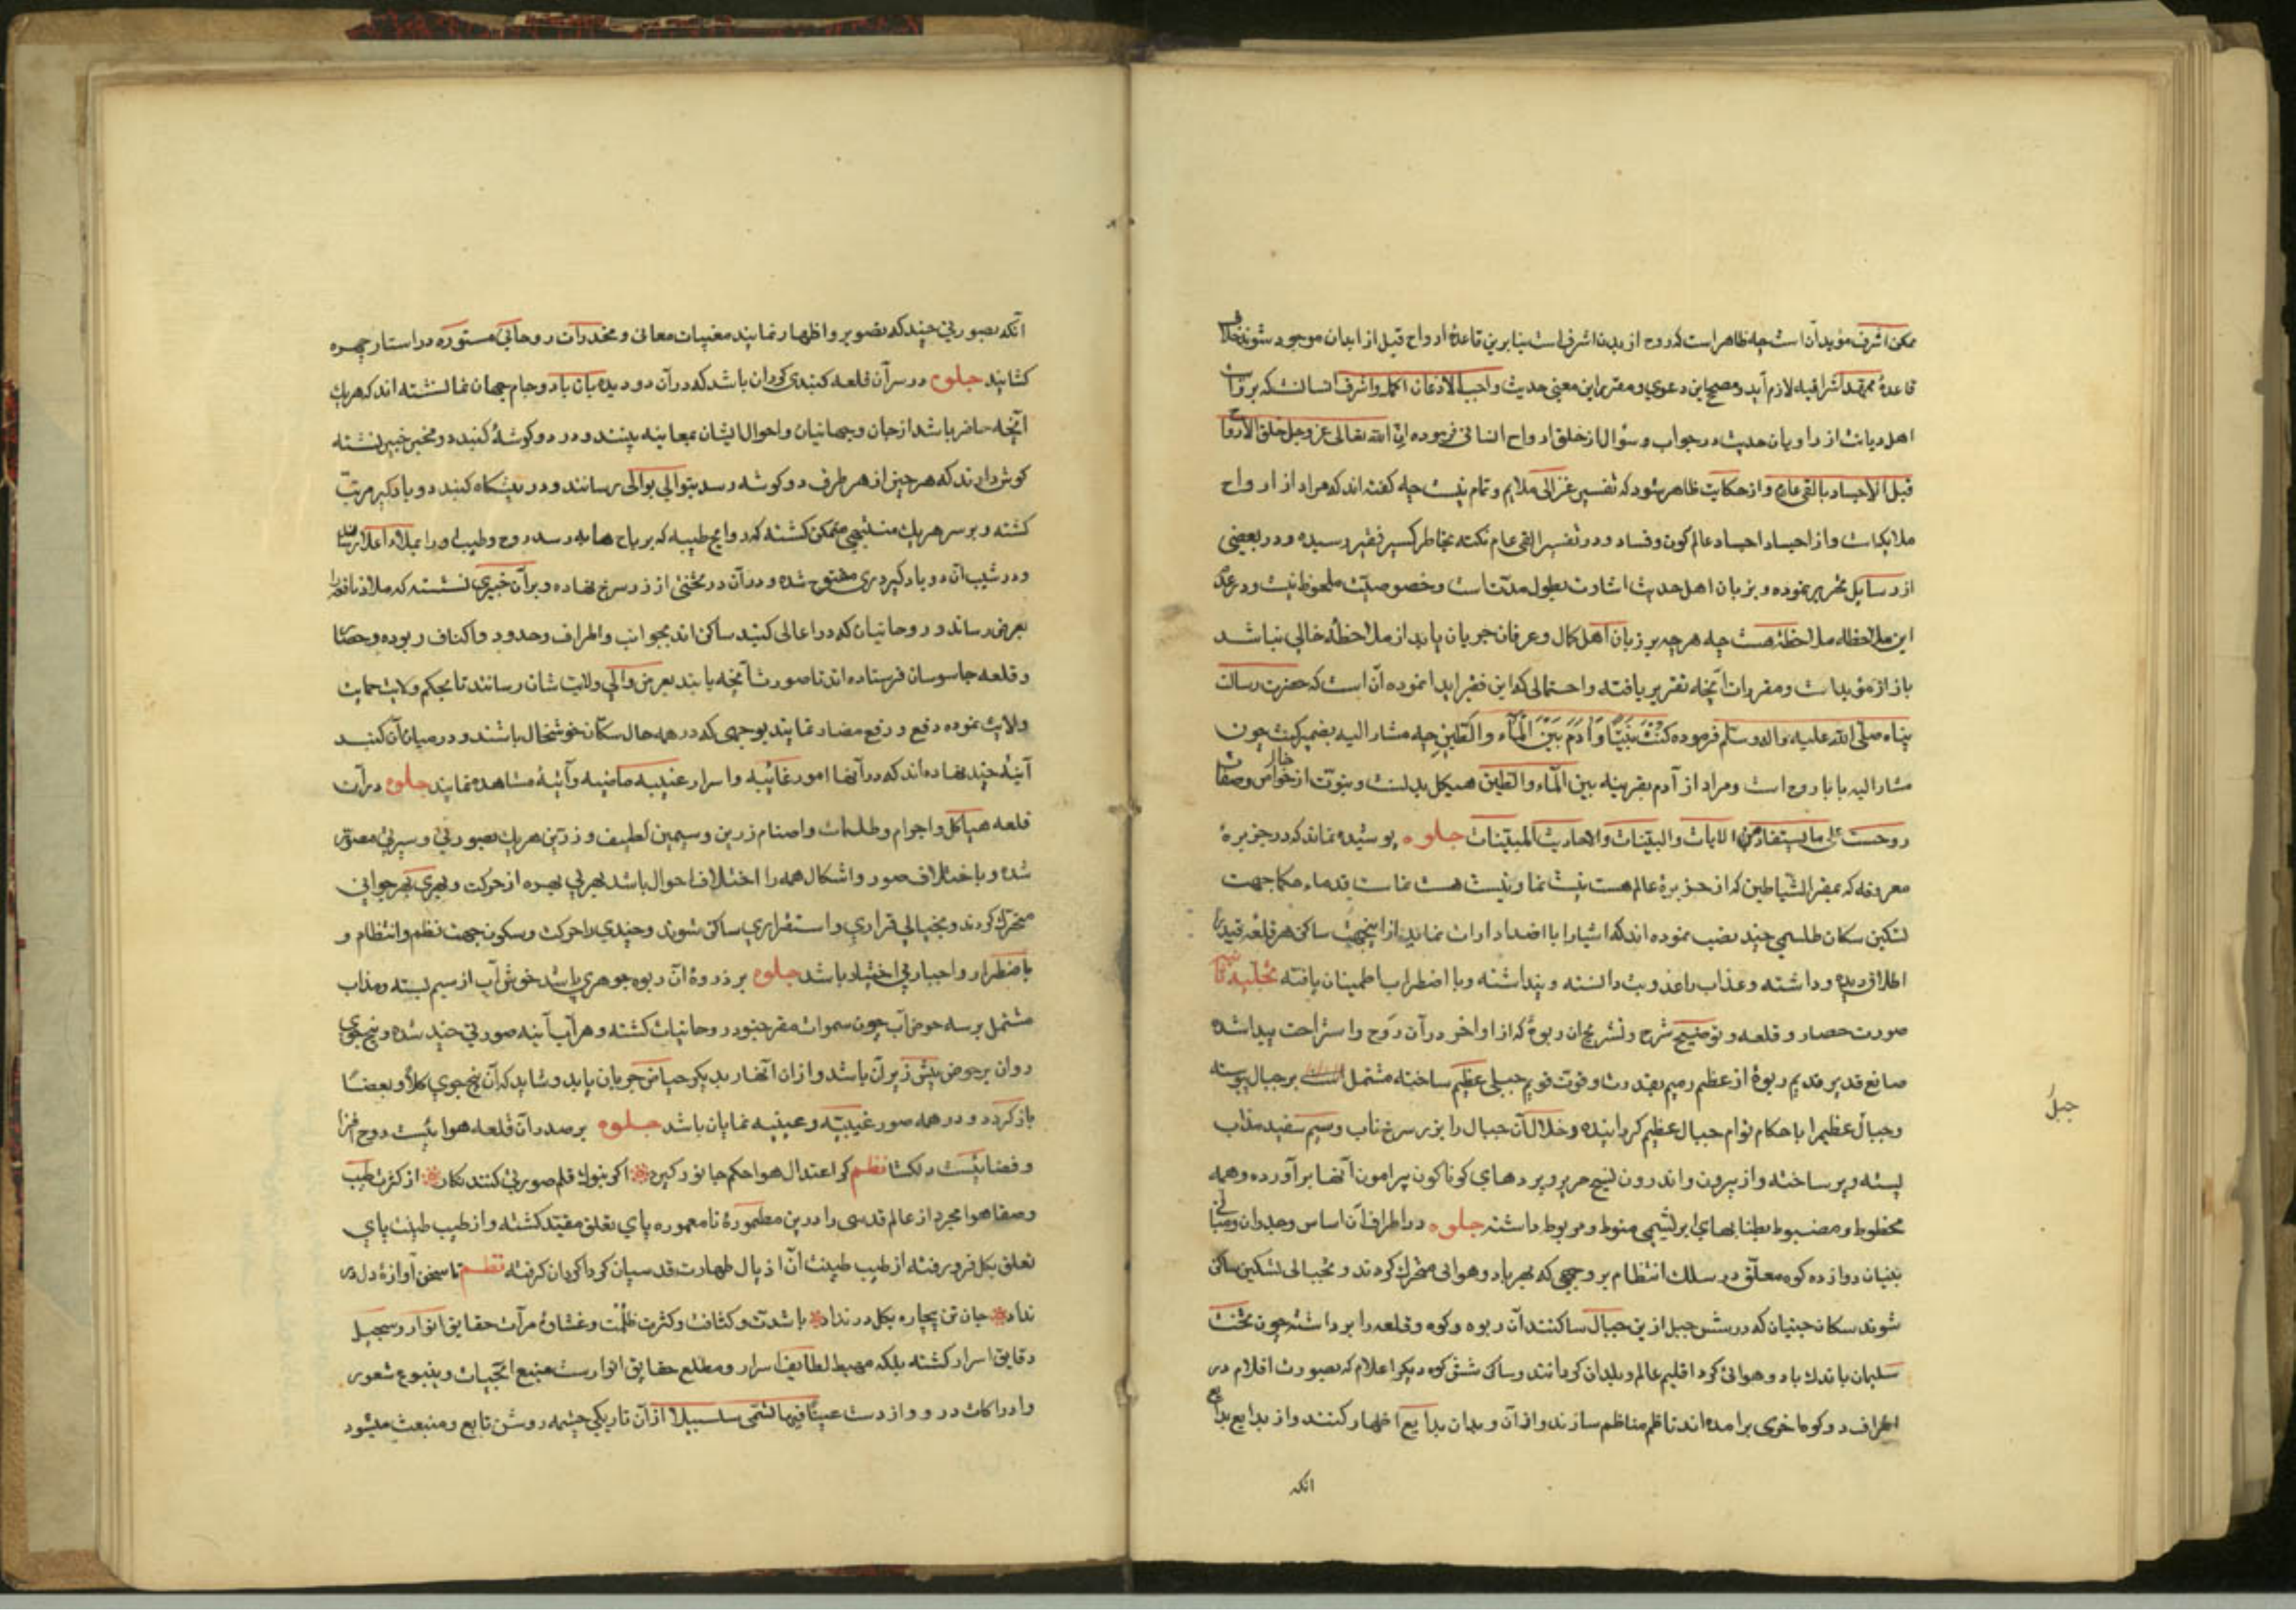 ممکن اشرف مؤید آن است چه ظاهر است که روح از بدن اشرف است بنابرین قاعدهٔ ارواح قبل از ابدان موجود شوند خلاف
قاعدهٔ ممهد اشراقیه لازم آید و مصحح این دعوی و مقرر این معنی حدیث واجب الاذعان اکمل و اشرف انسانست که بروایت
اهل دیانت از راویان حدیث در جواب و سؤال از خلق ارواح انسانی فرموده ان الله تعالی عز وجل خلق الارواح
قبل الاجساد بالفی عام و از حکایت ظاهر شود که تفسیر غزالی ملایم و تمام نیست چه گفته اند که مراد از ارواح
ملایکه است و از اجساد اجساد عالم کون و فساد و در تفسیر الفی عام نکته بخاطر کسیر فقیر رسیده و در بعضی
از رسایل تحریر نموده و بزبان اهل حدیث اشارت بطول مدتست و خصوصیت ملحوظ نیست و در عدّ
این ملاحظه ملاحظهٔ هست چه هر چه بر زبان اهل کمال و عرفان جریان یابد از ملاحظهٔ خالی نباشد
باز از مؤیدات و مقررات آنچه تقریر یافته و احتمالی که این فقیر ابدا نموده آن است که حضرت رسالت
پناه صلی الله علیه واله وسلم فرموده کُنْتُ نَبِیًّا وَآدَمَ بَیْنَ الْمَاءِ والطّین چه مشار الیه بضمیر کنت چون
مشار الیه بانا روح است و مراد از آدم بقرینه بین الماء والطین هیکل بدنست و نبوت از خواص و صفات
روحست علی ما یستفاد من الایات والبینات والاحادیث المبینات جلوه پوشیده نماند که در جزیرهٔ
معروفه که بمقر الشیاطین که از جزیرهٔ عالم هست نیست نما و نیست هست نماست قدماء حکما جهت
تسکین سکان طلسمی چند نصب نموده اند که اشیا را با اضداد ارائت نماید ازاینجهت ساکن هر قلعه قید را
اطلاق دیده و داشته و عذاب را عذوبت دانسته و پنداشته و با اضطراب اطمینان یافته تجلیه
صورت حصار و قلعه و توضیح شرح و تشریح ان ربوهٔ که از اواخر در آن روح و استراحت پیدا شده
صانع قدیر قدیم ربوهٔ از عظم رمیم بقدرت و قوت قویم جبلی عظیم ساخته مشتمل است بر جبال پیوسته
و جبال عظیم را باحکام توام جبال عظیم گردانیده و خلال آن جبال را بزر سرخ ناب و سیم سفید مذاب
بسته و پر ساخته و از بیرون و اندرون نسیج حریر و پردهای گوناگون پیرامون آنها برآورده و همه
محظوط و مضبوط بطنابهای ابریشمی منوط و مربوط داشته جلوه در اطراف آن اساس و جدران و مبانی
بنیان دوازده کوه معلّق در سلک انتظام بر وجهی که بهر باد و هوائی متحرک گردند و بخیالی تسکین ساکن
شوند سکان جنیان که در شش جبل ازین جبال ساکنند آن ربوه و کوه و قلعه را برداشته چون تخت
سلیمان باندک باد و هوائی گرد اقلیم عالم و بلدان گردانند و ساکن شش کوه دیگر اعلام که بصورت اقلام در
اطراف دو کوه اخری برآمده اند تا قلم مناظم سازند و از آن و بدان بدایع اظهار کنند و از بدایع بدایع
انکه
جبل
آنکه بصورتی چند که تصویر و اظهار نمایند مغیبات معانی و مخدرات روحانی مستوره در استار چهره
گشایند جلوه در سر آن قلعه گنبدی گردان باشد که در آن دو دیده بان با دو جام جهان نما نشسته اند که هر یک
آنچه حاضر باشد از جان و جهانیان و احوال ایشان بمعاینه بینند و در دو گوشهٔ گنبد دو مخبر خبیر نشسته
گوش دارند که هر چیز از هر طرف دو گوشه رسد بتوالی بوالی رسانند و در پیشگاه گنبد دو بادگیر مرتب
گشته و بر سر هر یک متنبهی متمکن گشته که روایح طیبه که بریاح هابه رسد روح و طیب او را بملاء اعلا رساند
و در شیب آن دو بادگیر دری مفتوح شده و در آن در تختی از زر سرخ نهاده و بر آن خبیری نشسته که ملاذ نافعه را
بعرض رساند و روحانیان که در اعالی گنبد ساکن اند بجوانب و اطراف و حدود و اکناف ربوده و حصار
و قلعه جاسوسان فرستاده اند تا صورت آنچه یابند بعرض والی ولایت شان رسانند تا بحکم ولایت حمایت
ولایت نموده دفع و رفع مضار نمایند بوجهی که در همه حال سکان خوشحال باشند و در میان آن گنبد
آینهٔ چند نهاده اند که در آنها امور غائبیه و اسرار عندیه ماضیه و آتیهٔ مشاهده نمایند جلوه در آن
قلعه هیاکل و اجرام و طلسمات و اصنام زرین و سیمین لطیف و زرین هر یک بصورتی و سیرتی مصور
شده و باختلاف صور و اشکال همه را اختلاف احوال باشد بهر پی بهره از حرکت و بهری بهر جوانی
متحرک گردند و بخیالی قراری و استقراری ساکن شوند و چندی را حرکت و سکون جهت نظم و انتظام و
باضطرار و اجبار بی اختیار باشد جلوه بر ذروهٔ آن ربوه جوهری باشد خوش آب از سیم بسته و مذاب
مشتمل بر سه حوض آب چون سموات مقر جنود روحانیات گشته و هر آب آینه صورتی چند شده و پنج جوی
روان بر حوض پیش زیر آن باشد و از آن انهار بدیگر حیاض جریان یابد و شاید که آن پنج جوی کلا و بعضا
باز گردد و در همه صور غیبیه و عینیه نمایان باشد جلوه بر صدر آن قلعه هوائیست روح افزا
و فضائیست دلگشا نظم کز اعتدال هوا حکم جانور گیرد * اگر بنوک قلم صورتی کنند نگار * از کثرت طیب
و صفا هوا مجرد از عالم قدسی را درین مطمورهٔ نامعموره پای تعلق مقید گشته و از طیب طینت پای
تعلق بگل فرو رفته از طیب طینت آن اذیال طهارت قدسیان گرداگردان گرفته نظم تا سخن آوازهٔ دل در
نداد * جان تن بیچاره بگل در نداد * با شدت و کثافت و کثرت ظلمت و غشاوهٔ مرآت حقایق انوار و سجیل
دقایق اسرار گشته بلکه مهبط لطایف اسرار و مطلع حقایق انوارست منبع انجیبات و ینبوع شعور
و ادراکات در و و از دست عینا فیها تسمی سلسبیلا از آن تاریکی چشمه روشن تابع و منبعث میشود